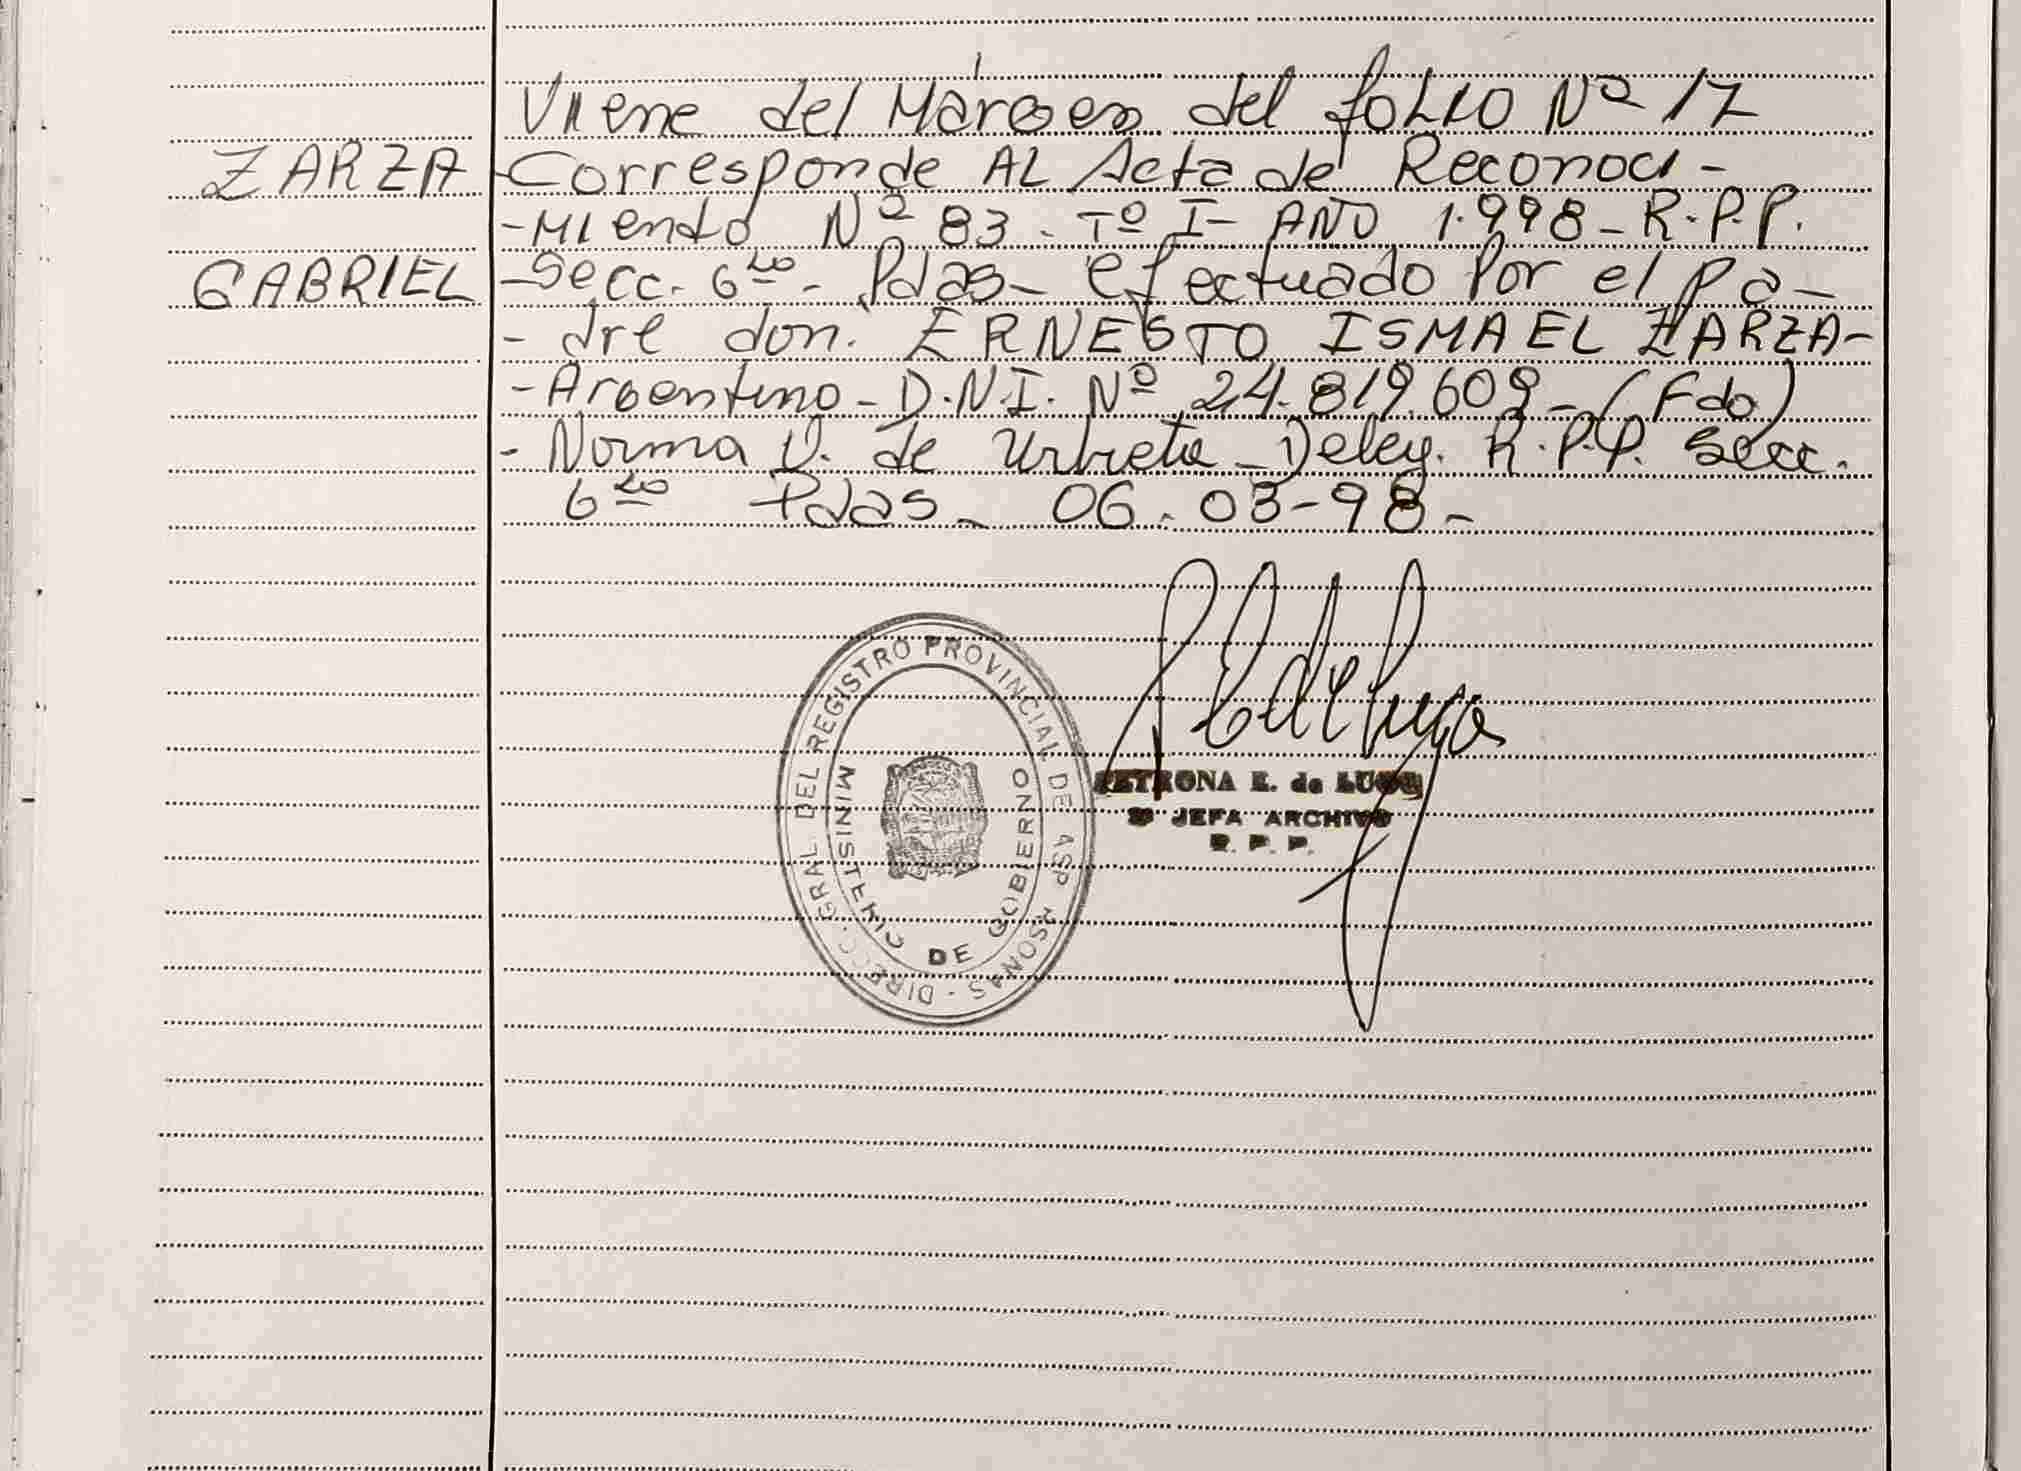 Viene del Márgen del folio Nº 17
ZARZA Corresponde AL Acta de Reconoci-
-miento Nº 83. Tº I- AÑO 1.998-R.P.P.
GABRIEL -Secc. 6ta- Pdas- efectuado Por el pa-
-dre don. ERNESTO ISMAEL ZARZA-
-Argentino-D.N.I. Nº 24.819.609-(Fdo)
-Norma V. de Urbieta-Deleg. R.P.P. Secc.
6ta Pdas- 06-03-98-
DIRECC. GRAL DEL REGISTRO PROVINCIAL DE LAS PERSONAS -
MINISTERIO DE GOBIERNO
PETRONA E. de LUGO
JEFA ARCHIVO
R. P. P.